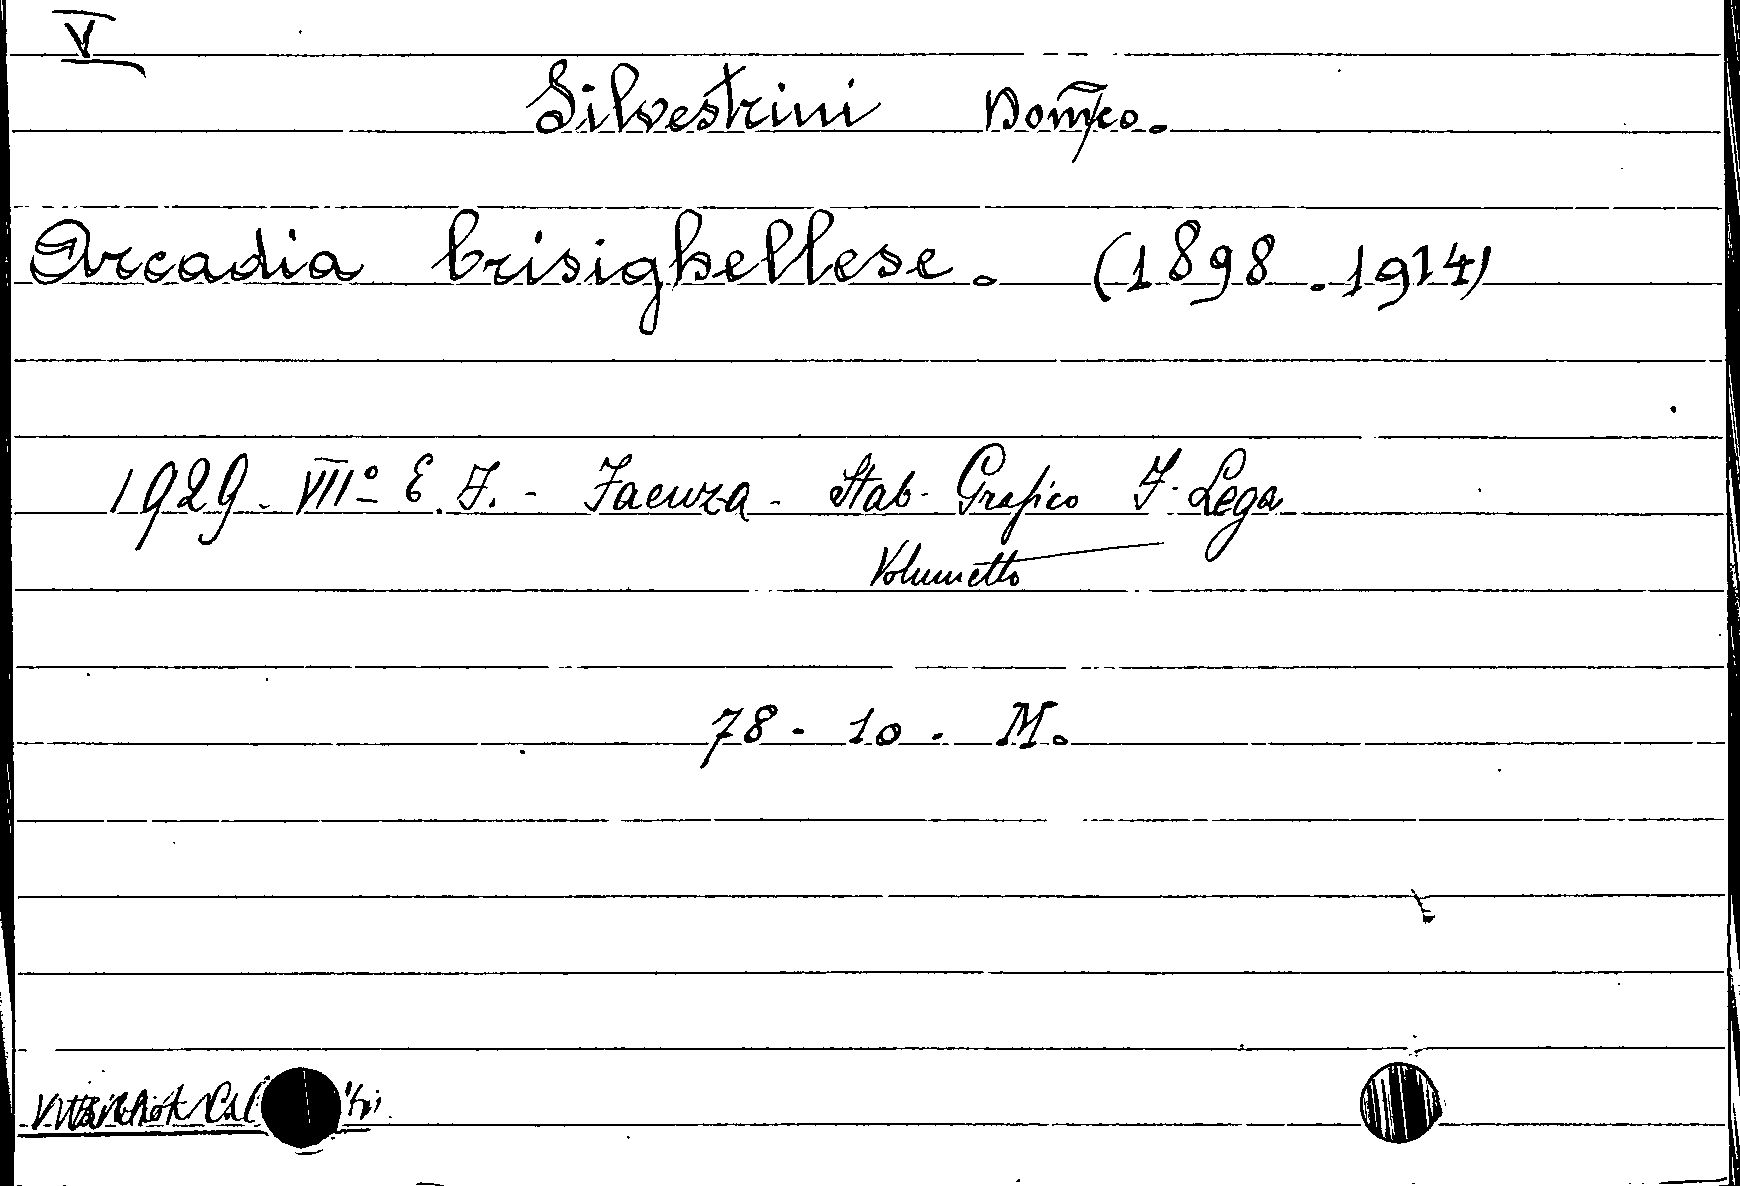 V
Silvestrini Dom/co.
Arcadia brisighellese. (1898 - 1914)
1929 - VIIº E. F. - Faenza - Stab. Grafico F. Lega
Volumetto
78 - 10 - M.